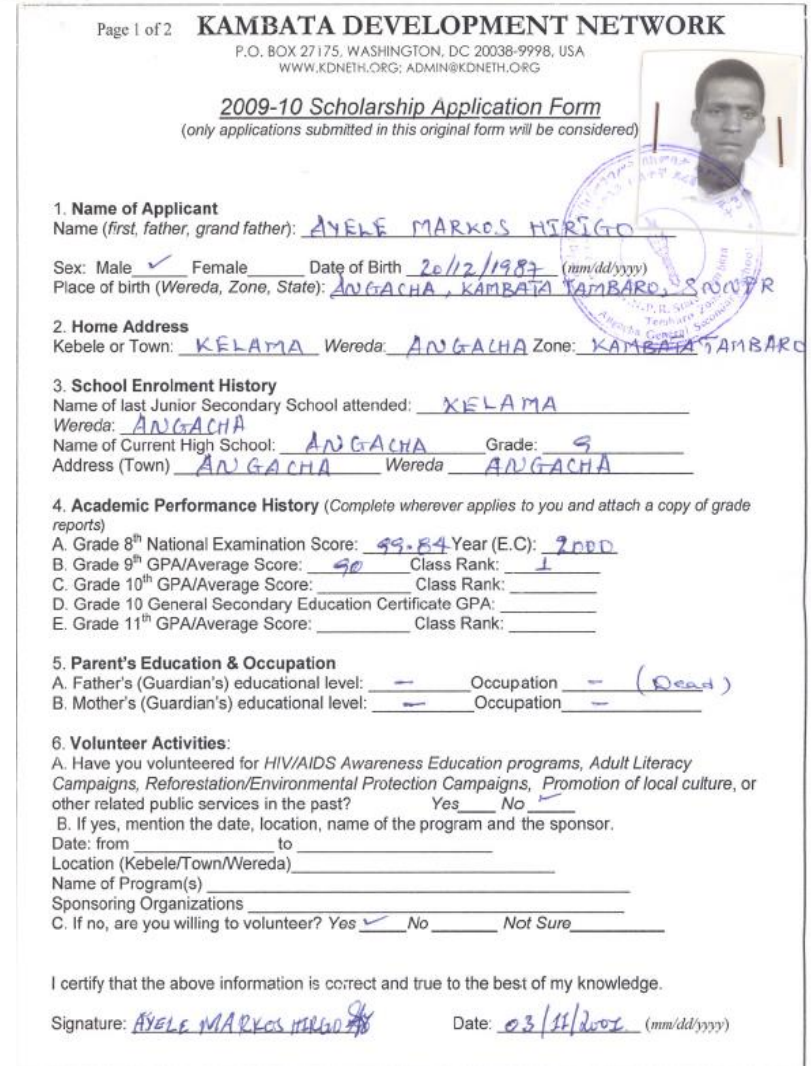 Page 1 of 2 KAMBATA DEVELOPMENT NETWORK
P.O. BOX 27175, WASHINGTON, DC 20038-9998, USA
WWW.KDNETH.ORG; ADMIN@KDNETH.ORG
2009-10 Scholarship Application Form
(only applications submitted in this original form will be considered)
1. Name of Applicant
Name (first, father, grand father): AYELE MARKOS HIRIGO
Sex: Male ✓ Female Date of Birth 20/12/1987 (mm/dd/yyyy)
Place of birth (Wereda, Zone, State): ANGACHA, KAMBATA TAMBARO, SNNPR
2. Home Address
Kebele or Town: KELAMA Wereda: ANGACHA Zone: KAMBATA TAMBARO
3. School Enrolment History
Name of last Junior Secondary School attended: KELAMA
Wereda: ANGACHA
Name of Current High School: ANGACHA Grade: 9
Address (Town) ANGACHA Wereda ANGACHA
4. Academic Performance History (Complete wherever applies to you and attach a copy of grade
reports)
A. Grade 8th National Examination Score: 99.84 Year (E.C): 2000
B. Grade 9th GPA/Average Score: 90 Class Rank: 1
C. Grade 10th GPA/Average Score: Class Rank:
D. Grade 10 General Secondary Education Certificate GPA:
E. Grade 11th GPA/Average Score: Class Rank:
5. Parent's Education & Occupation
A. Father's (Guardian's) educational level: — Occupation — (Dead)
B. Mother's (Guardian's) educational level: — Occupation —
6. Volunteer Activities:
A. Have you volunteered for HIV/AIDS Awareness Education programs, Adult Literacy
Campaigns, Reforestation/Environmental Protection Campaigns, Promotion of local culture, or
other related public services in the past? Yes No ✓
B. If yes, mention the date, location, name of the program and the sponsor.
Date: from to
Location (Kebele/Town/Wereda)
Name of Program(s)
Sponsoring Organizations
C. If no, are you willing to volunteer? Yes ✓ No Not Sure
I certify that the above information is correct and true to the best of my knowledge.
Signature: AYELE MARKOS HIRGO Date: 03/11/2001 (mm/dd/yyyy)